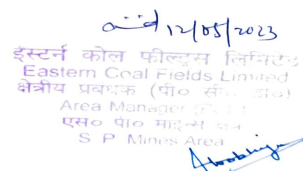 12/05/2023
ईस्टर्न कोल फील्ड्स लिमिटेड
Eastern Coal Fields Limited
क्षेत्रीय प्रबंधक (पी० सी०
Area Manager
एस० पी० माइन्स
S P Mines Area